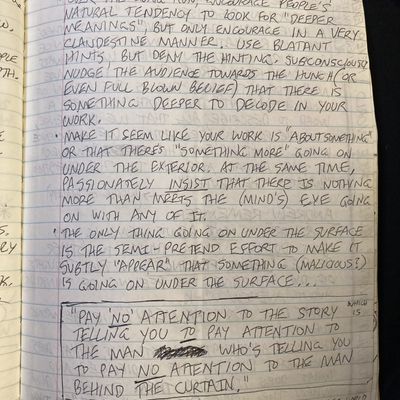 OVER THE LONG RUN, ENCOURAGE PEOPLE'S
NATURAL TENDENCY TO LOOK FOR "DEEPER
MEANINGS", BUT ONLY ENCOURAGE IN A VERY
CLANDESTINE MANNER. USE BLATANT
HINTS, BUT DENY THE HINTING. SUBCONSCIOUSLY
NUDGE THE AUDIENCE TOWARDS THE HUNCH (OR
EVEN FULL BLOWN BELIEF) THAT THERE IS
SOMETHING DEEPER TO DECODE IN YOUR
WORK.
• MAKE IT SEEM LIKE YOUR WORK IS "ABOUT SOMETHING"
OR THAT THERE'S "SOMETHING MORE" GOING ON
UNDER THE EXTERIOR. AT THE SAME TIME,
PASSIONATELY INSIST THAT THERE IS NOTHING
MORE THAN MEETS THE (MIND'S) EYE GOING
ON WITH ANY OF IT.
• THE ONLY THING GOING ON UNDER THE SURFACE
IS THE SEMI-PRETEND EFFORT TO MAKE IT
SUBTLY "APPEAR" THAT SOMETHING (MALICIOUS?)
IS GOING ON UNDER THE SURFACE...
"PAY 'NO' ATTENTION TO THE STORY
TELLING YOU TO PAY ATTENTION TO
THE MAN WHO'S TELLING YOU
TO PAY NO ATTENTION TO THE MAN
BEHIND THE CURTAIN."
WHICH
IS